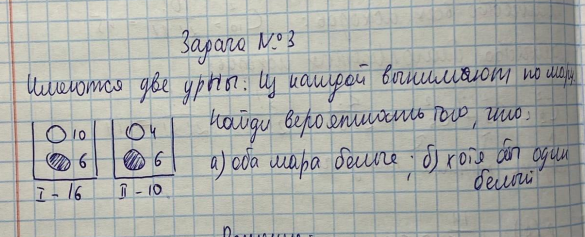 Задача №3
Имеются две урны: Из каждой вынимают по шару.
Найди вероятность того, что:
а) оба шара белые; б) хотя бы один
белый
10
4
6
6
I - 16
II - 10.